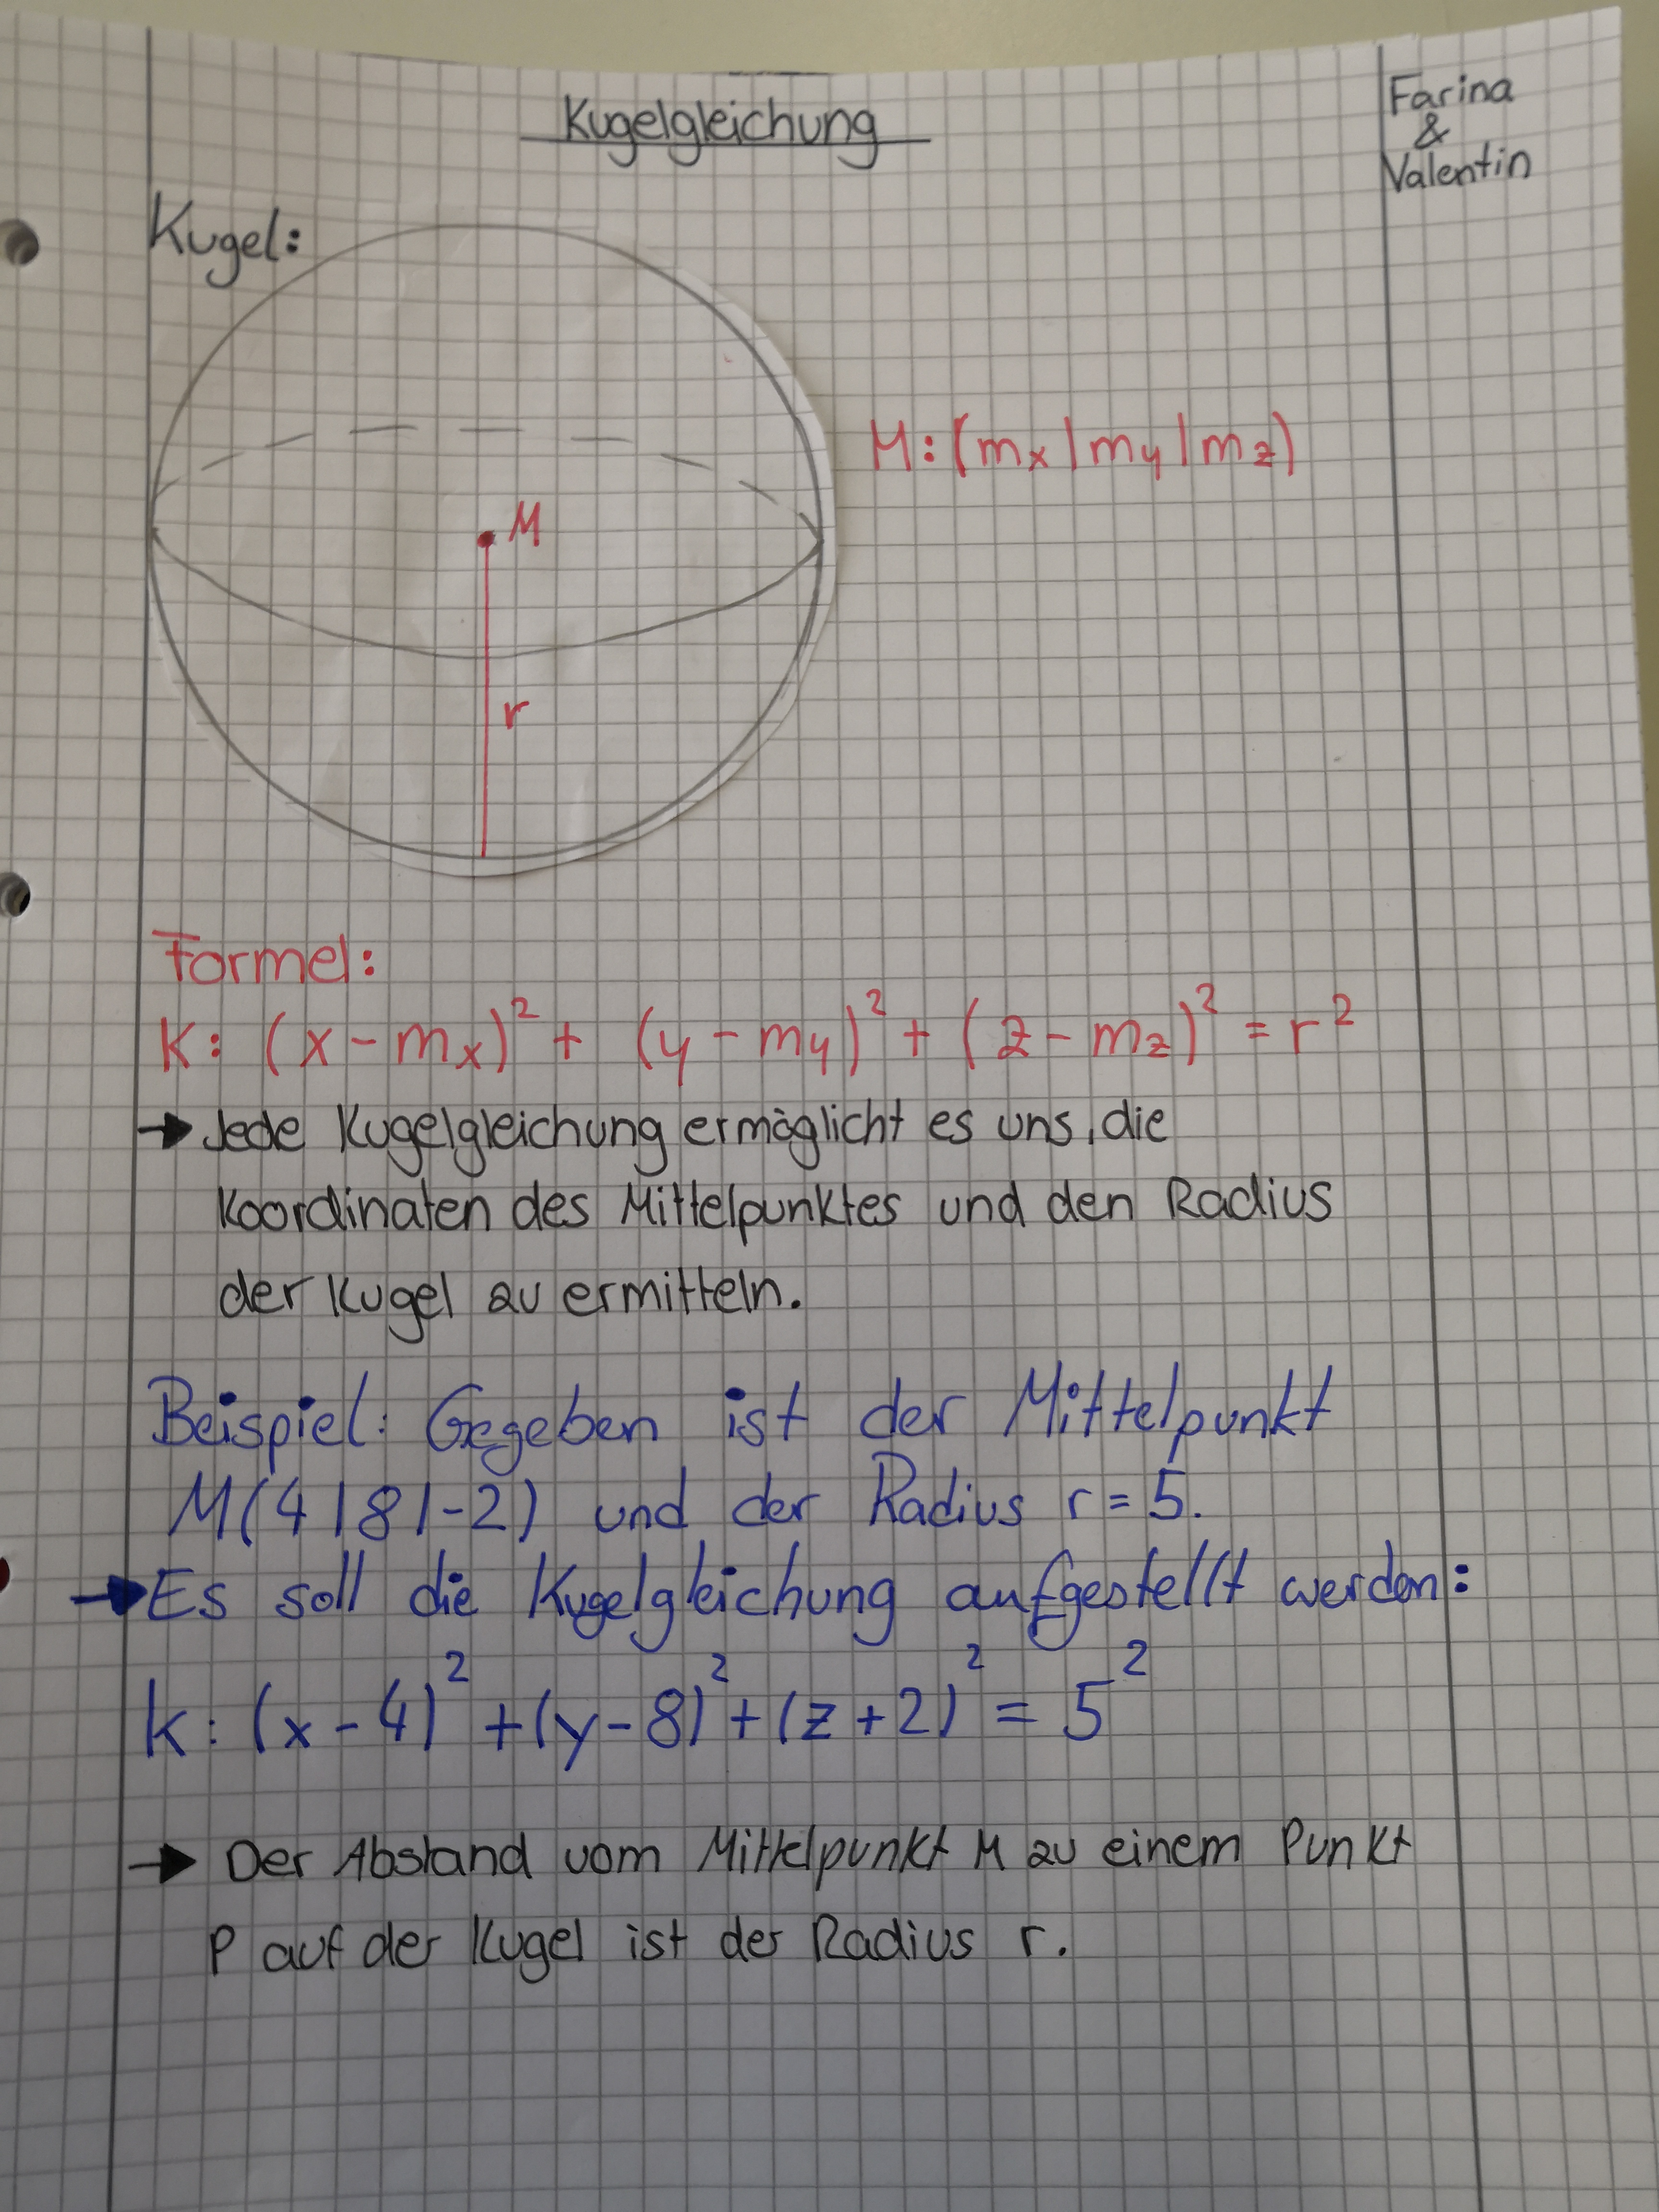 Kugelgleichung
Farina
&
Valentin
Kugel:
M: (mx|my|mz)
M
r
Formel:
K: (x - mx)² + (y - my)² + (z - mz)² = r²
→ Jede Kugelgleichung ermöglicht es uns, die
Koordinaten des Mittelpunktes und den Radius
der Kugel zu ermitteln.
Beispiel: Gegeben ist der Mittelpunkt
M(4|8|-2) und der Radius r = 5.
→ Es soll die Kugelgleichung aufgestellt werden:
k: (x - 4)² + (y - 8)² + (z + 2)² = 5²
→ Der Abstand vom Mittelpunkt M zu einem Punkt
P auf der Kugel ist der Radius r.